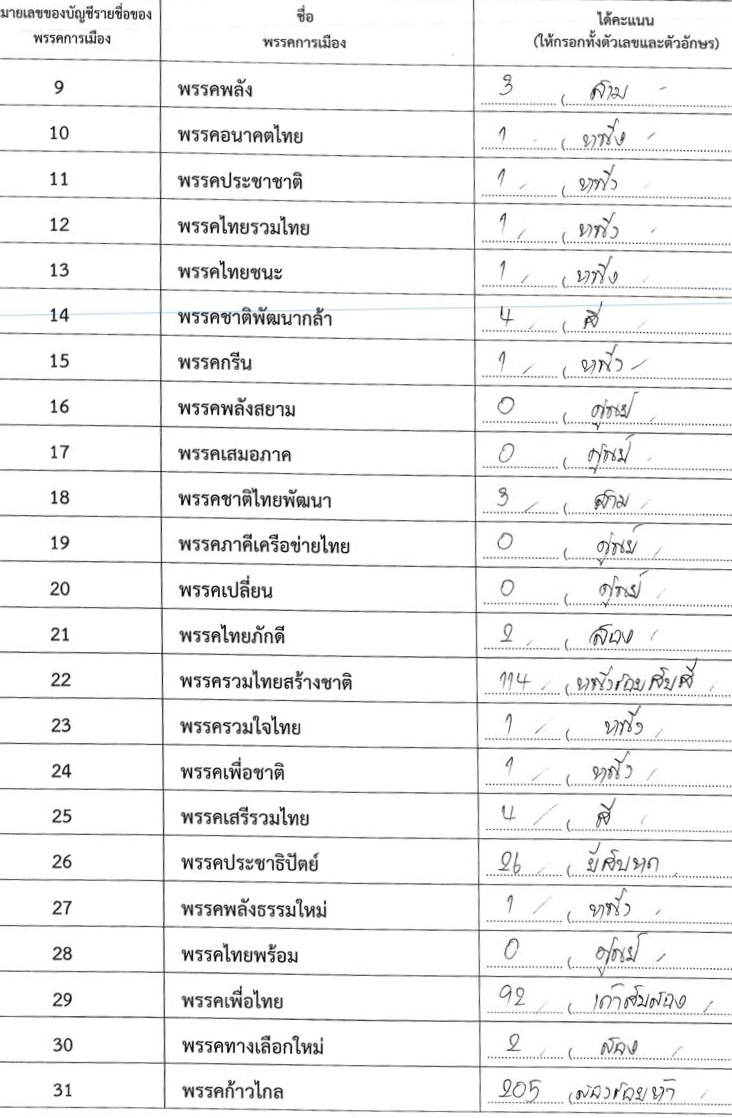 มายเลขของบัญชีรายชื่อของ พรรคการเมือง ชื่อ พรรคการเมือง ได้คะแนน (ให้กรอกทั้งตัวเลขและตัวอักษร)
9 พรรคพลัง 3 ( สาม
10 พรรคอนาคตไทย 1 ( หนึ่ง
11 พรรคประชาชาติ 1 ( หนึ่ง
12 พรรคไทยรวมไทย 1 ( หนึ่ง
13 พรรคไทยชนะ 1 ( หนึ่ง
14 พรรคชาติพัฒนากล้า 4 ( สี่
15 พรรคกรีน 1 ( หนึ่ง
16 พรรคพลังสยาม 0 ( ศูนย์
17 พรรคเสมอภาค 0 ( ศูนย์
18 พรรคชาติไทยพัฒนา 3 ( สาม
19 พรรคภาคีเครือข่ายไทย 0 ( ศูนย์
20 พรรคเปลี่ยน 0 ( ศูนย์
21 พรรคไทยภักดี 2 ( สอง
22 พรรครวมไทยสร้างชาติ 114 ( หนึ่งร้อยสิบสี่
23 พรรครวมใจไทย 1 ( หนึ่ง
24 พรรคเพื่อชาติ 1 ( หนึ่ง
25 พรรคเสรีรวมไทย 4 ( สี่
26 พรรคประชาธิปัตย์ 26 ( ยี่สิบหก
27 พรรคพลังธรรมใหม่ 1 ( หนึ่ง
28 พรรคไทยพร้อม 0 ( ศูนย์
29 พรรคเพื่อไทย 92 ( เก้าสิบสอง
30 พรรคทางเลือกใหม่ 2 ( สอง
31 พรรคก้าวไกล 205 ( สองร้อยห้า